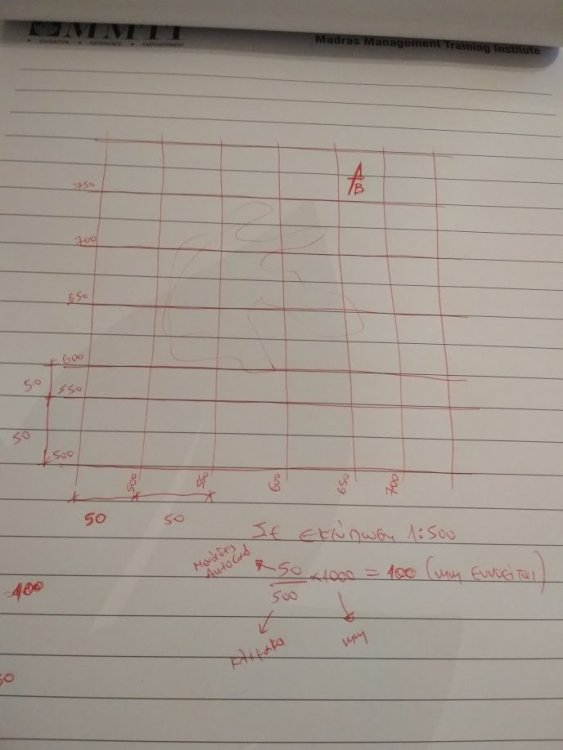 MMTI
EDUCATION • EXPERIENCE • EMPOWERMENT
Madras Management Training Institute
750
B
700
650
600
50
550
50
500
500
550
600
650
700
50
50
Σε εκτύπωση 1:500
Μονάδες AutoCad
50/500 × 1000 = 100 (mm εννοείται)
100
κλίμακα
mm
50